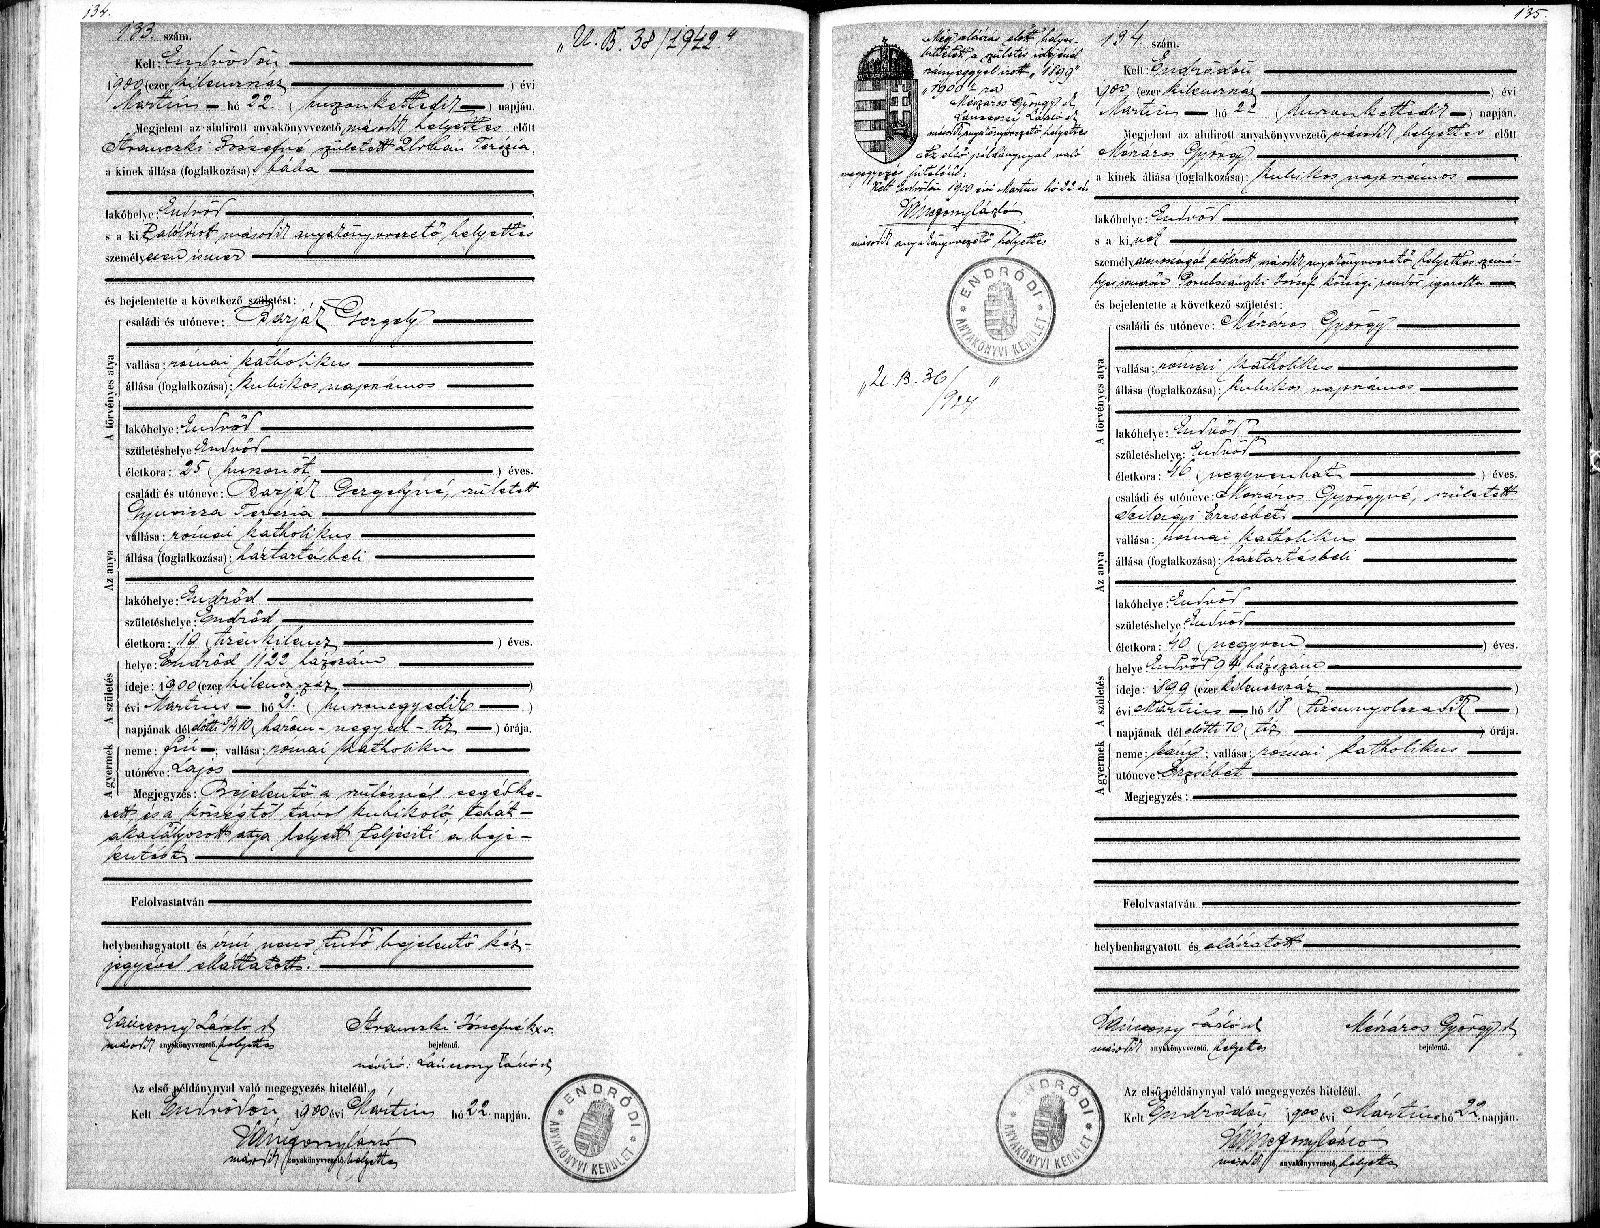 134.
133. szám.
"U. B. 38/1942."
Kelt: Endrődön
1900 (ezer kilenczszáz) évi
Martius hó 22. (huszonkettedik) napján.
Megjelent az alulirott anyakönyvvezető második helyettes előtt
született Terezia
a kinek állása (foglalkozása): bába
lakóhelye: Endrőd
s a kit alólírott második anyakönyvvezető helyettes
személyesen ismer
és bejelentette a következő születést:
A törvényes atya
családi és utóneve: Barják Gergely
vallása: római katholikus
állása (foglalkozása): kubikos napszámos
lakóhelye: Endrőd
születéshelye: Endrőd
életkora: 25 (huszonöt) éves.
Az anya
családi és utóneve: Barják Gergelyné, született
Gyuricza Terézia
vallása: római katholikus
állása (foglalkozása): háztartásbeli
lakóhelye: Endrőd
születéshelye: Endrőd
életkora: 19 (tizenkilencz) éves.
A születés
helye: Endrőd 1122 házszám
ideje: 1900 (ezer kilencz száz)
évi Martius hó 21. (huszonegyedik)
napjának dél előtti 3/4 10 (három-negyed-tíz) órája.
A gyermek
neme: fiú; vallása: római katholikus
utóneve: Lajos
Megjegyzés: Bejelentő a szülésnél segédke-
zett, és a községtől távol kubikoló, tehát
akadályozott atya helyett teljesíti a beje-
lentést
Felolvastatván
helybenhagyatott és írni nem tudó bejelentő kéz-
jegyével elláttatott.
László
második anyakönyvvezető, helyettes
Józsefné
bejelentő.
névíró: László
Az első példánynyal való megegyezés hiteléül.
Kelt Endrődön 1900 évi Mártius hó 22 napján.
László
második anyakönyvvezető, helyettes
ENDRŐDI
ANYAKÖNYVI KERÜLET
135.
Még aláírás előtt helyes-
bíttetett a születés idejénél
"1899"
"1900"-ra
Mészáros György
László
második anyakönyvvezető helyettes
Az első példánynyal való
megegyezés hiteléül:
Kelt Endrődön 1900 évi Martius hó 22 én
László
második anyakönyvvezető helyettes
ENDRŐDI
ANYAKÖNYVI KERÜLET
"U. B. 36/
924"
134. szám.
Kelt: Endrődön
1900 (ezer kilenczszáz) évi
Martius hó 22 (huszonkettedik) napján.
Megjelent az alulirott anyakönyvvezető második helyettes előtt
Mészáros György
a kinek állása (foglalkozása): kubikos napszámos
lakóhelye: Endrőd
s a kinek
személyazonosságát alólírott második anyakönyvvezető helyettes szemé-
lyes József községi rendőr igazolta
és bejelentette a következő születést:
A törvényes atya
családi és utóneve: Mészáros György
vallása: római katholikus
állása (foglalkozása): kubikos napszámos
lakóhelye: Endrőd
születéshelye: Endrőd
életkora: 46 (negyvenhat) éves.
Az anya
családi és utóneve: Mészáros Györgyné, született
Szilágyi Erzsébet
vallása: római katholikus
állása (foglalkozása): háztartásbeli
lakóhelye: Endrőd
születéshelye: Endrőd
életkora: 40 (negyven) éves.
A születés
helye: Endrőd 94 házszám
ideje: 1899 (ezer kilenczszáz)
évi Mártius hó 18 (tizennyolczadik)
napjának dél előtti 10 (tíz) órája.
A gyermek
neme: leány; vallása: római katholikus
utóneve: Erzsébet
Megjegyzés:
Felolvastatván
helybenhagyatott és aláíratott
László
második anyakönyvvezető, helyettes
Mészáros György
bejelentő.
Az első példánynyal való megegyezés hiteléül.
Kelt Endrődön 1900 évi Mártius hó 22 napján.
László
második anyakönyvvezető, helyettes
ENDRŐDI
ANYAKÖNYVI KERÜLET